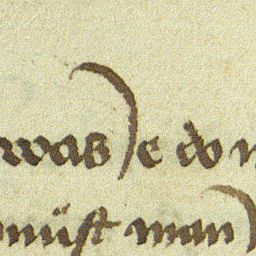 was e do
müst man